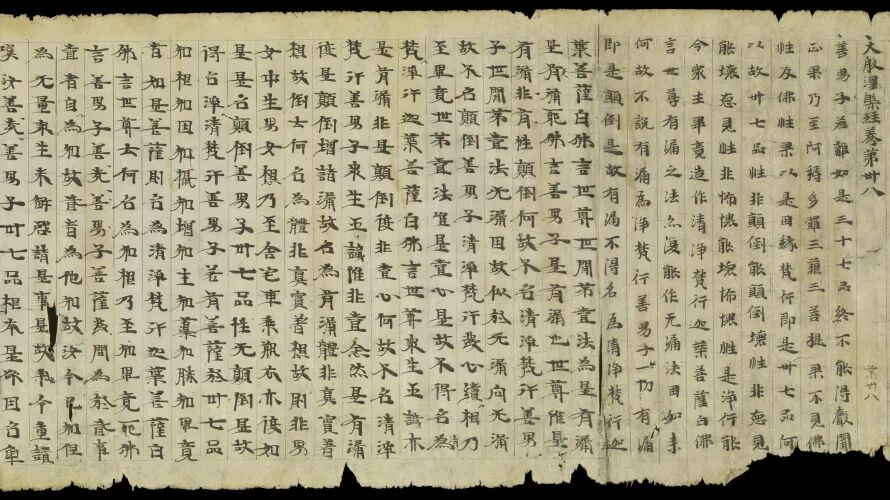 大般涅槃經卷第卅八
善男子若離如是三十七品終不能得聲聞
正果乃至阿耨多羅三藐三菩提果不見佛
性及佛性果以是因緣梵行即是卅七品何
以故卅七品性非顛倒能顛倒壞性非惡見
能壞惡見性非怖愄能壞怖愄性是淨行能
令衆生畢竟造作清淨梵行迦葉菩薩白佛
言世尊有漏之法亦復能作无漏法因如来
何故不說有漏為淨梵行善男子一切有漏
即是顛倒是故有漏不得名為清淨梵行迦
葉菩薩白佛言世尊世間第壹法為是有漏
是無漏耶佛言善男子是有漏也世尊惟是
有漏非有性顛倒何故不名清淨梵行善男
子世間第壹法无漏因故似於无漏向无漏
故不名顛倒善男子清淨梵行發心續相乃
至畢竟世第壹法唯是壹心是故不得名清
梵淨行迦葉菩薩白佛言世尊衆生五識亦
是有漏非是顛倒復非壹心何故不名清淨
梵行善男子衆生五識惟非壹念然是有漏
復是顛倒增諸漏故名為有漏體非真實著
想故倒云何名為體非真實著想故則非男
女中生男女想乃至舍宅車乘瓶衣亦復如
是是名顛倒善男子卅七品性无顛倒是故
得名淨清梵行善男子若有菩薩於卅七品
知相知因知攝知增知主知導知勝知畢竟
者如是菩薩則名為清淨梵行迦葉菩薩白
佛言世尊云何名為知相乃至知畢竟耶佛
言善男子善哉善男子菩薩發問為於貳事
壹者自為知故貳者為他知故汝今已知但
為无量衆生未解啟請是事是故我今重讚
嘆汝善哉善男子卅七品根本是欲因名